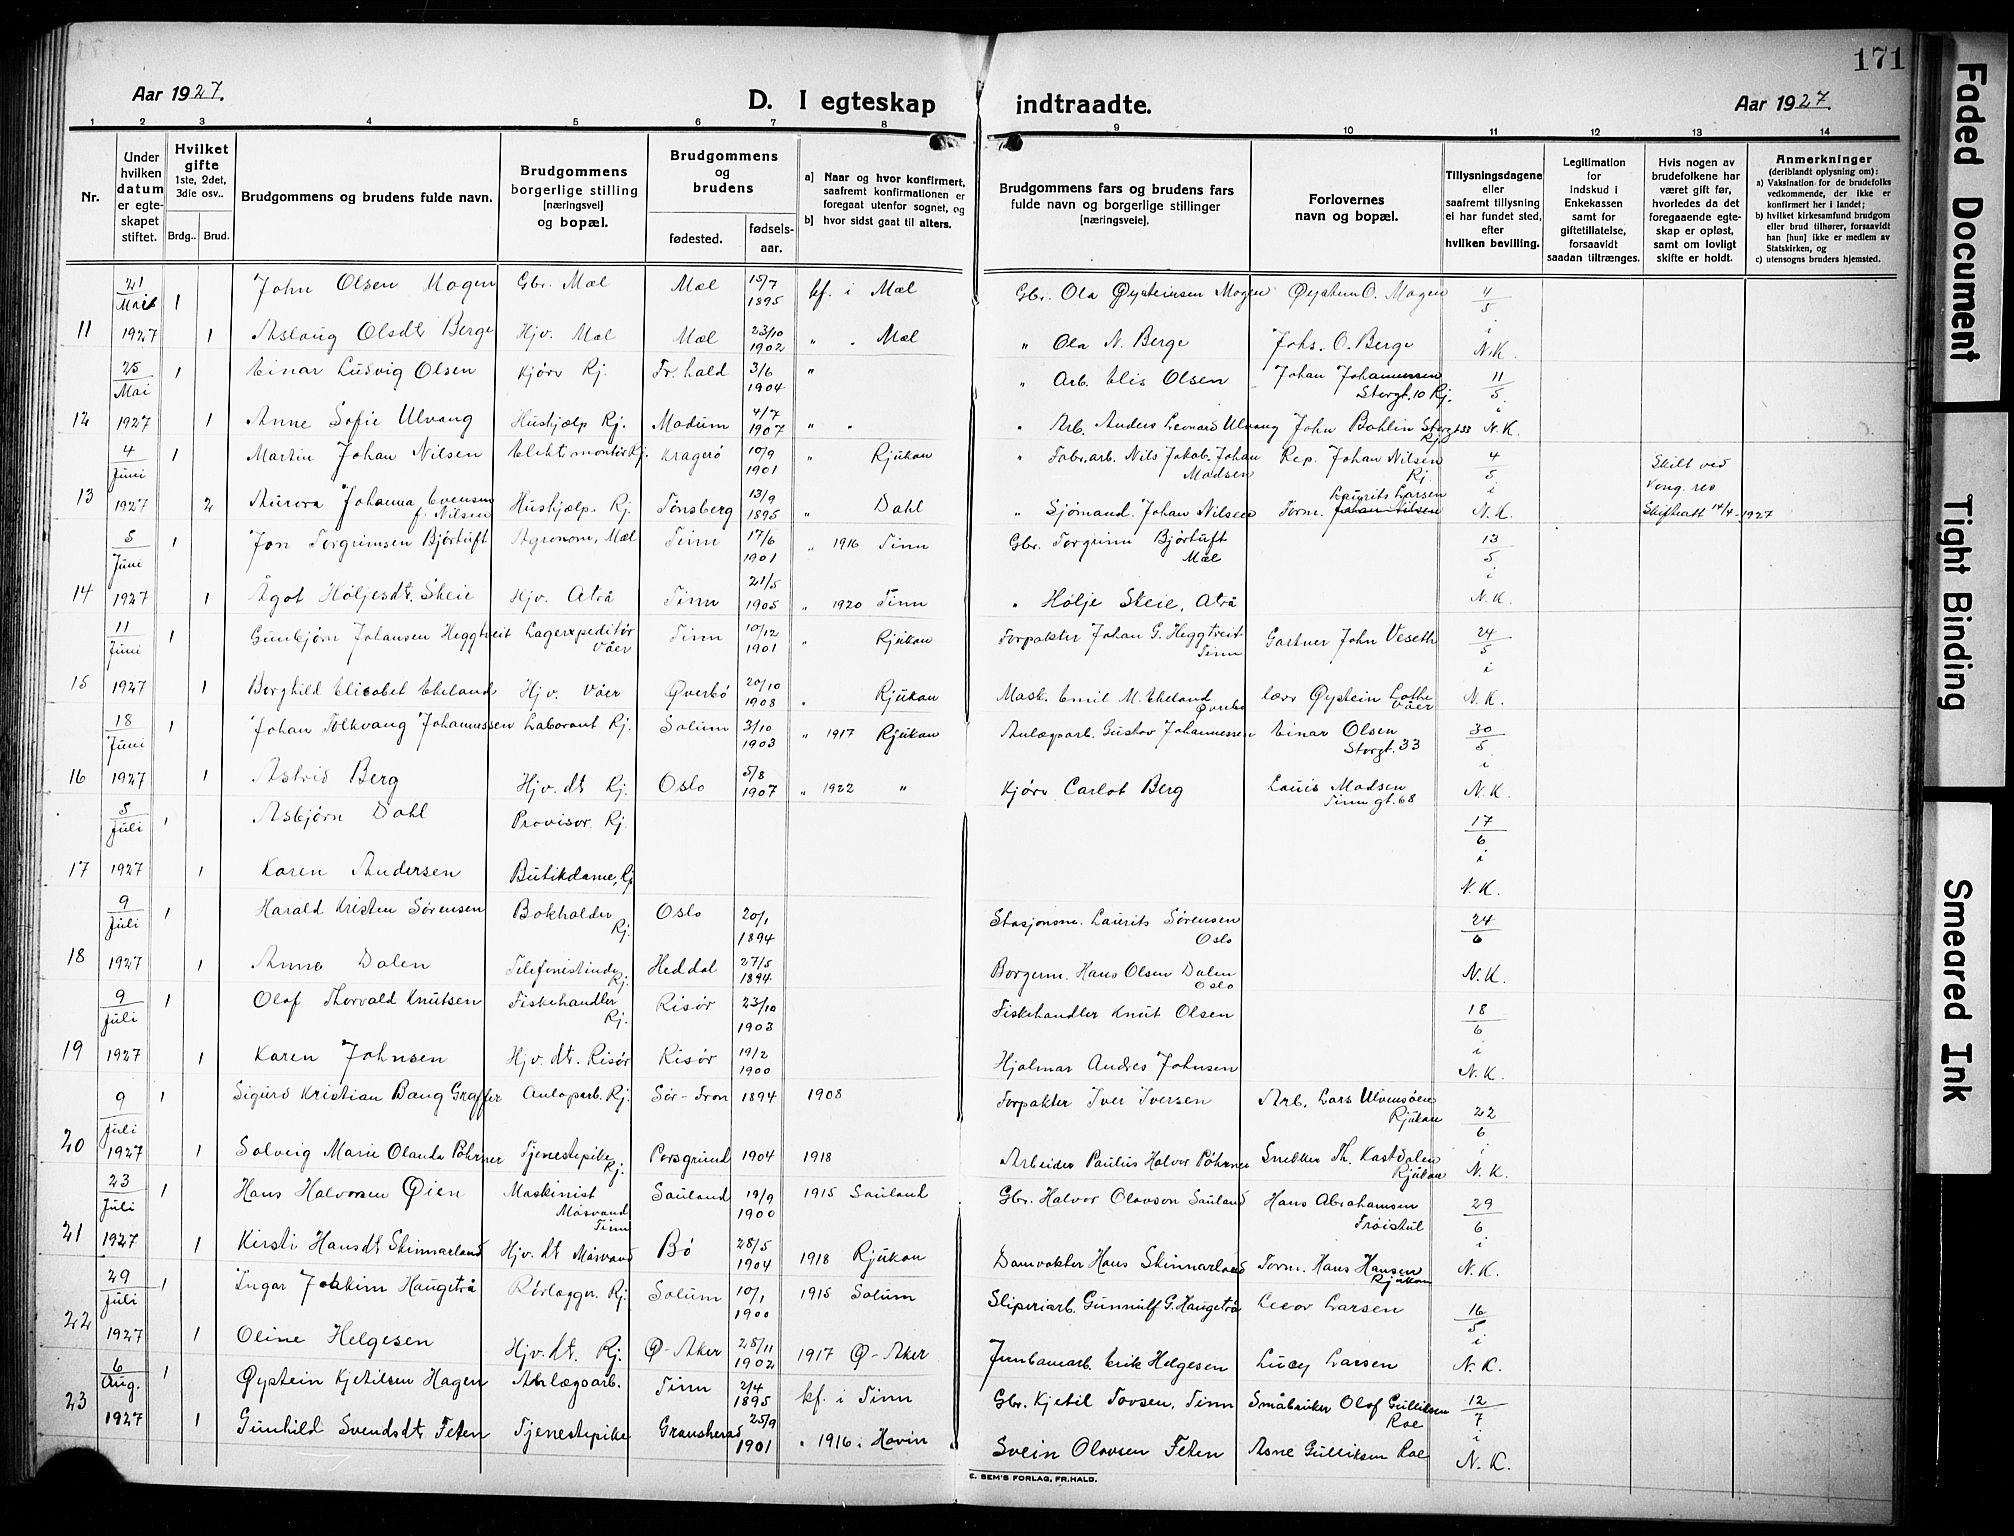 171
Aar 1927.
D. I egteskap indtraadte.
Aar 1927.
1 2 3 4 5 6 7 8 9 10 11 12 13 14
Nr.
Under hvilken datum er egteskapet stiftet.
Hvilket gifte 1ste, 2det, 3die osv..
Brdg.. Brud.
Brudgommens og brudens fulde navn.
Brudgommens borgerlige stilling [næringsvei] og bopæl.
Brudgommens og brudens
fødested.
fødsels-aar.
a) Naar og hvor konfirmert, saafremt konfirmationen er foregaat utenfor sognet, og
b) hvor sidst gaat til alters.
Brudgommens fars og brudens fars fulde navn og borgerlige stillinger [næringsveie].
Forlovernes navn og bopæl.
Tillysningsdagene eller saafremt tillysning ei har fundet sted, efter hvilken bevilling.
Legitimation for indskud i Enkekassen samt for giftetillatelse, forsaavidt saadan tiltrænges.
Hvis nogen av brudefolkene har været gift før, hvorledes da det foregaaende egteskap er opløst, samt om lovligt skifte er holdt.
Anmerkninger (deriblandt oplysning om):
a) Vaksination for de brudefolks vedkommende, der ikke er konfirmert her i landet;
b) hvilket kirkesamfund brudgom eller brud tilhører, forsaavidt han [hun] ikke er medlem av Statskirken, og
c) utensogns bruders hjemsted.
21 Mai 1 John Olsen Mogen Gbr. Mæl Mæl 15/7 1895 kf. i Mæl Gbr. Ola Øysteinsen Mogen Øystein O. Mogen 4/5 i
11 1927 1 Aslaug Olsdt Berge Hjv. Mæl Mæl 23/10 1902 " " Mæl " Ola N. Berge Johs. O. Berge N.K.
25 Mai 1 Einar Ludvig Olsen Kjørv Rj. Fr.hald 3/6 1904 " " Arb. Elis Olsen Johan Johannessen Storgt. 10 Rj. 11/5 i
12 1927 1 Anne Sofie Ulvang Hushjælp Rj. Modum 4/7 1907 " " " Arb. Anders Leonard Ulvang John Bohlin Storgt 33 Rj. N.K.
4 Juni 1 Martin Johan Nilsen Elektmontør Rj. Kragerø 10/9 1901 " Rjukan " Fabr.arb. Nils Jakob Johan Madsen Rep. Johan Nilsen Rj. 4/5 i Skilt ved
13 1927 2 Aurora Johanna Evensen f. Nilsen Hushjælp. Rj. Tønsberg 13/9 1895 " Dahl " Sjømand. Johan Nilsen Form. Laurits Larsen N.K. Kong. res Skifteatt 14/4-1927
5 Juni 1 Jon Torgrimsen Bjørtuft Agronom, Mæl Tinn 17/6 1901 " 1916 Tinn Gbr. Torgrim Bjørtuft Mæl 13/5 i
14 1927 1 Ågot Høljesdt. Skeie Hjv. Atrå Tinn 21/5 1905 " 1920 Tinn " Hølje Skeie, Atrå N.K.
11 Juni 1 Gunbjørn Johansen Heggtveit Lagerxpeditør Våer Tinn 10/12 1901 " Rjukan Forpakter Johan G. Heggtveit Tinn Gartner John Veseth 24/5 i
15 1927 1 Borghild Elisabet Ekeland Hjv. Våer Øvrebö 20/10 1908 " Rjukan Mask. Emil M. Ekeland Øvrebö Lærer Øystein Lothe Våer N.K.
18 Juni 1 Johan Folkvang Johannessen Laborant Rj. Solum 3/10 1903 " 1917 Rjukan Anlægsarb. Gustav Johannessen Einar Olsen Storgt. 33 30/5 i
16 1927 1 Astrid Berg Hjv. dt Rj. Oslo 5/8 1907 " 1922 " Kjørv Carlot Berg Louis Madsen Tinn gt. 68 N.K.
5 Juli 1 Asbjørn Dahl Provisor Rj. 17/6 i
17 1927 1 Karen Andersen Butikdame, Rj N.K.
9 Juli 1 Harald Kristen Sørensen Bokholder Rj. Oslo 20/1 1894 Stasjonsm. Laurits Sørensen Oslo 24/6
18 1927 1 Anna Dalen Telefonistinde Rj. Heddal 27/5 1894 Borgerm. Hans Olsen Dalen Oslo N.K.
9 Juli 1 Olaf Thorvald Knutsen Fiskehandler Rj. Risör 23/10 1903 Fiskehandler Knut Olsen 18/6 i
19 1927 1 Karen Johnsen Hjv. dt. Risør Risør 19/2 1900 Hjalmar Andres Johnsen N.K.
9 Juli 1 Sigurd Kristian Bang Graffer Anlægsarb. Rj. Sör-Fron 1894 1908 Forpakter Iver Iversen Arb. Lars Ulvensøen Rjukan 22/6 i
20 1927 1 Solveig Marie Olanda Pöhrner Tjenestepike Rj. Porsgrund 1904 1918 Arbeider Paulus Halvor Pöhrner Snekker Th. Kastdalen Rjukan N.K.
23 Juli 1 Hans Halvorsen Øien Maskinist Møsvand Tinn Sauland 19/9 1900 1915 Sauland Gbr. Halvor Olavson Sauland Hans Abrahamsen Frøistul 29/6 i
21 1927 1 Kirsti Hansdt Skinnarland Hjv. dt Møsvand Bö 28/5 1904 1918 Rjukan Damvokter Hans Skinnarland Form. Hans Hansen Rjukan N.K.
29 Juli 1 Ingar Joakim Haugetrå Rörlegger. Rj. Solum 10/1 1900 1915 Solum Sliperiarb. Gunnulf G. Haugetrå Leeor Larsen 16/5 i
22 1927 1 Oline Helgesen Hjv. dt. Rj. Ø-Aker 28/11 1902 1917 Ø-Aker Jernbanearb. Erik Helgesen Lucy Larsen N.K.
6 Aug. 1 Øystein Kjetilsen Hagen Anlægsarb. Tinn 2/4 1895 kf. i Tinn Gbr. Kjetil Tovsen, Tinn Småbruker Olaf Gulliksen Roe 12/7 i
23 1927 1 Gunhild Svendsdt Feten Tjenestepike Gransherad 25/9 1901 " 1916 i Hovin Svein Olavsen Feten Asne Gulliksen Roe N.K.
E. SEM'S FORLAG, FR.HALD.
Faded Document
Tight Binding
Smeared Ink